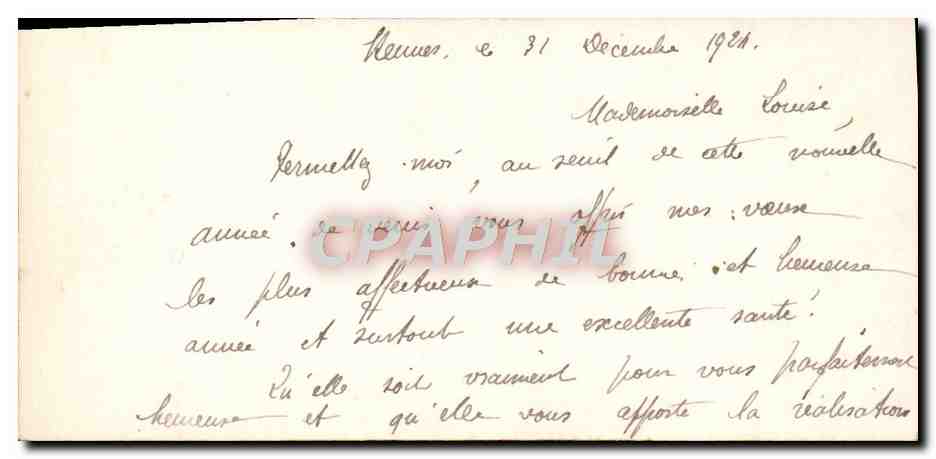 Rennes, le 31 Décembre 1924.
Mademoiselle Louise,
Permettez-moi, au seuil de cette nouvelle
année, de venir vous offrir mes vœux
les plus affectueux de bonne et heureuse
année et surtout une excellente santé!
Qu'elle soit vraiment pour vous parfaitement
heureuse et qu'elle vous apporte la réalisation
CPAPHIL